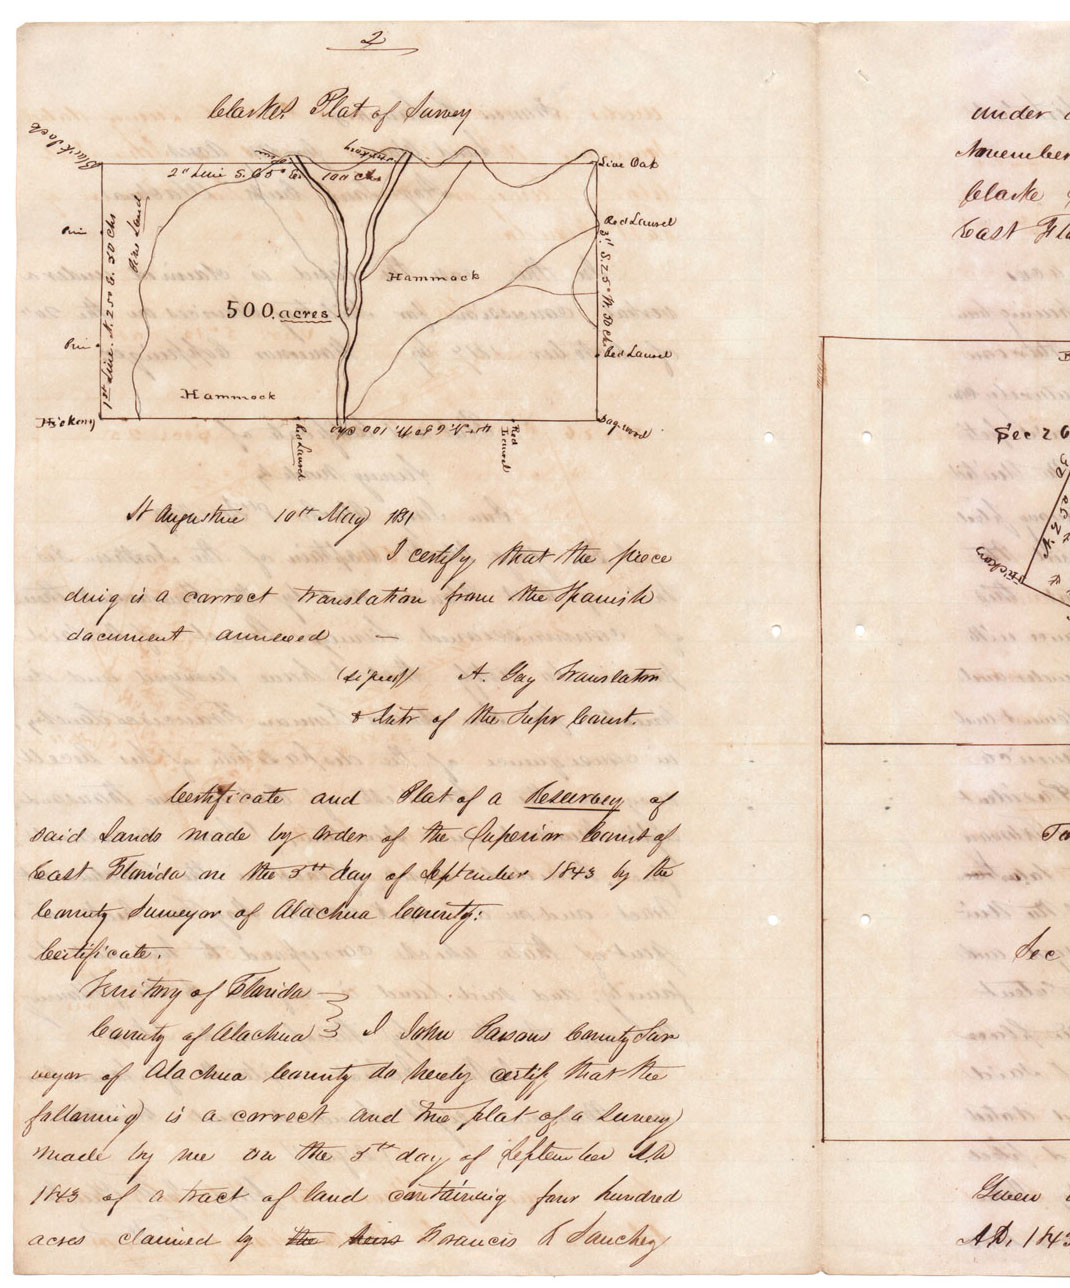 2
Clarkes Plat of Survey
Black Jack
Pine
Hickory
Live Oak
2d Line S. 65° E. 100 Chs
Pine
Pine Land
Red Laurel
1st Line N. 25° E. 50 Chs
Hammock
3d S. 25° W. 50 Ch.
500 acres
Pine
Red Laurel
Hammock
Hickory
Dogwood
4th N. 65° W. 100 Chs
Red Laurel
Red Laurel
St Augustine 10th May 1831
I certify that the prece
ding is a correct translation from the Spanish
document annexed —
(signed) A. Gay Translator
& Intr of the Supr Court.
Certificate and Plat of a Resurvey of
said Lands made by order of the Superior Court of
East Florida on the 5th day of September 1843 by the
County Surveyor of Alachua County:
Certificate.
Territory of Florida
County of Alachua } I John Parsons County Sur
veyor of Alachua County do hereby certify that the
following is a correct and true plat of a survey
made by me on the 5th day of September A.D
1843 of a tract of land containing four hundred
acres claimed by the heirs Francis R Sanchez
under
November
Clarke
East Fl
B
Sec 26
N. 25
Hickory
To
Sec
Given
A.D. 1843